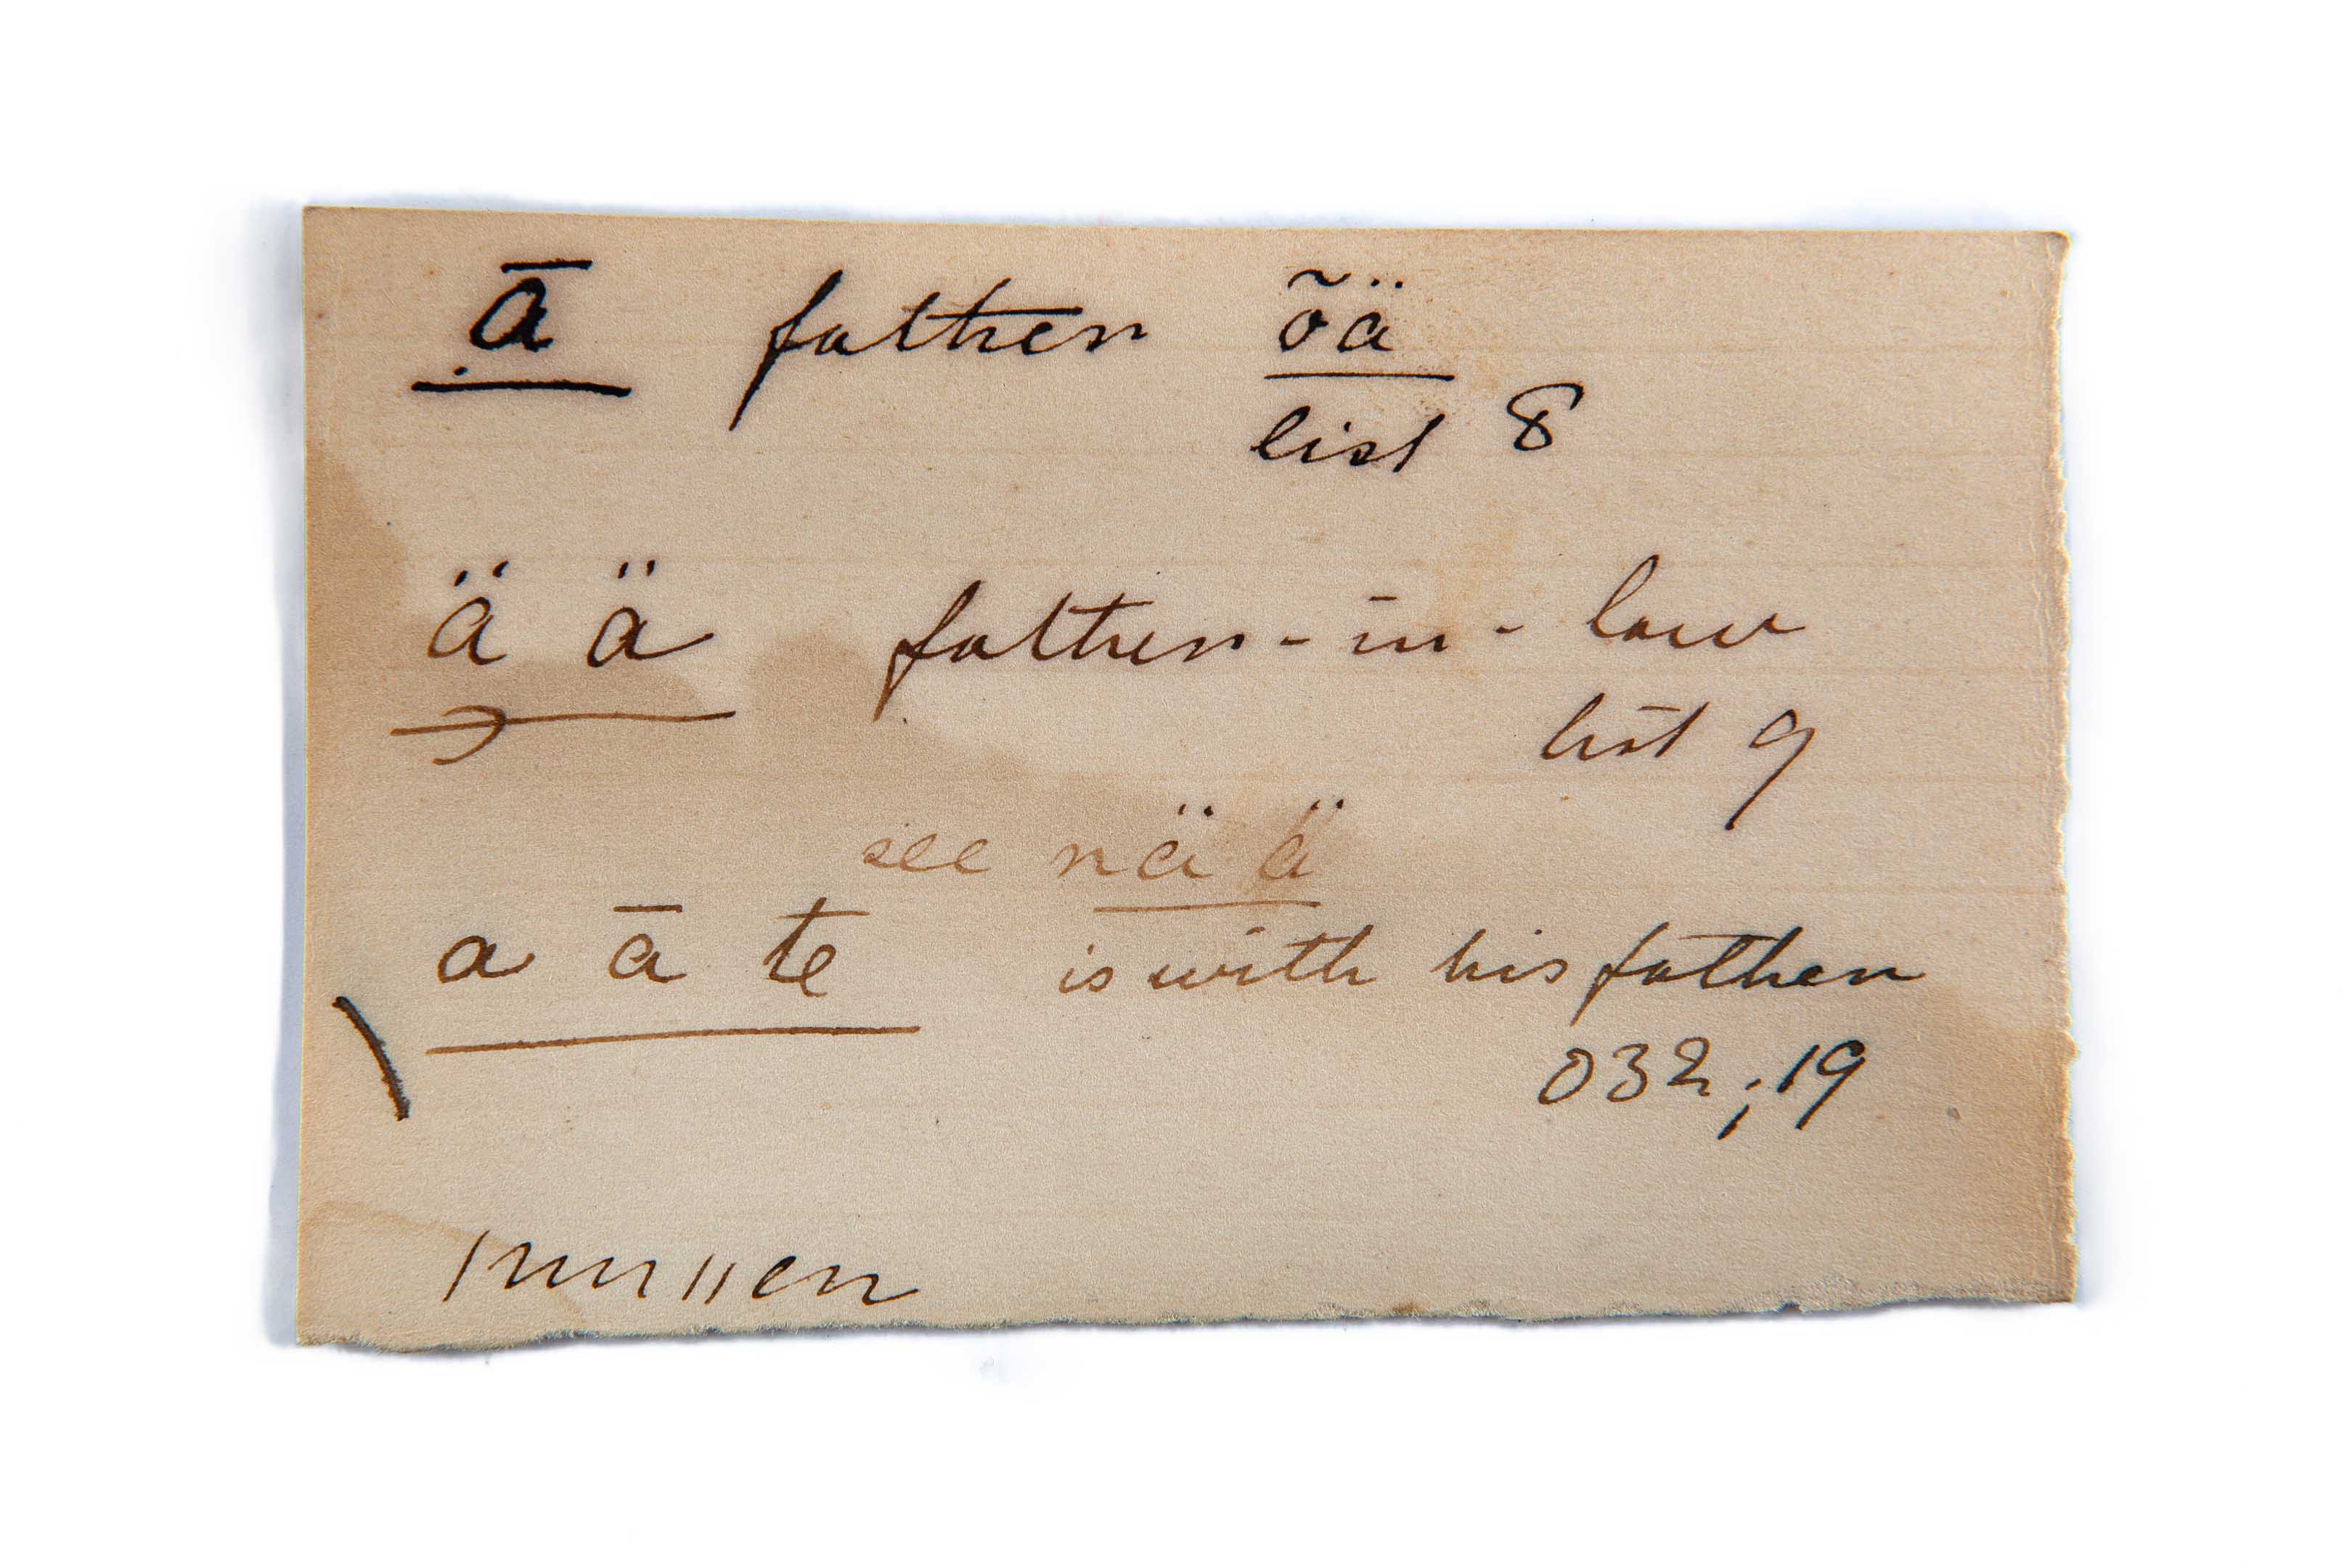 ā father õä
list 8
ä ä father-in-law
list 9
see nä ä
a ā te is with his father
032;19